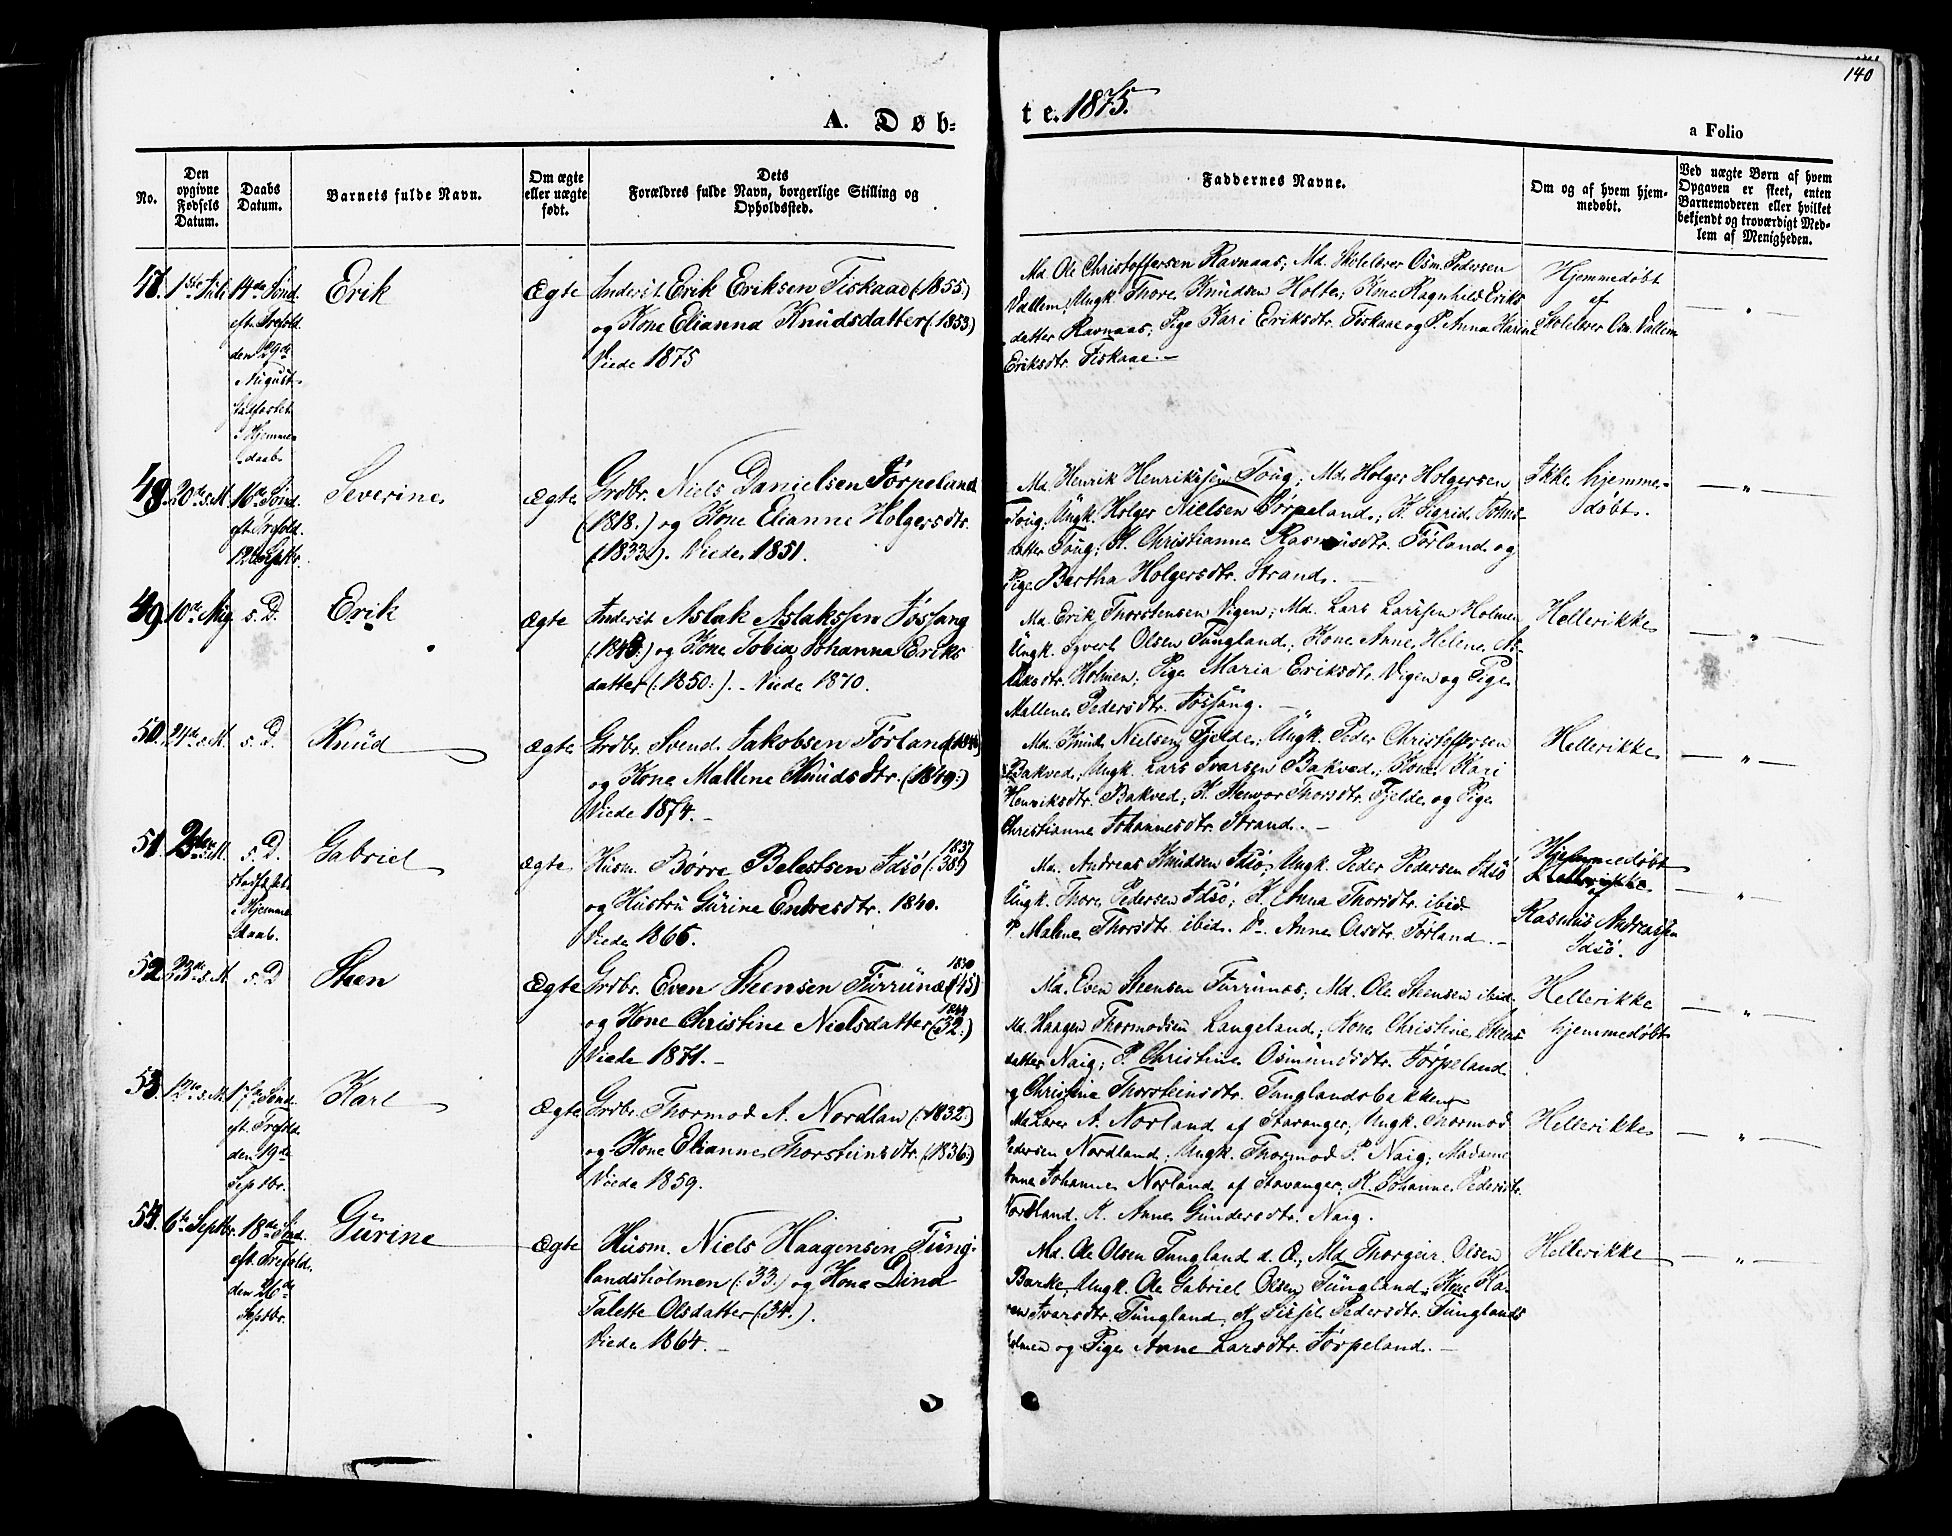 140
A. Døb-
te. 1875.
a Folio
No.
Den opgivne Fødsels Datum.
Daabs Datum.
Barnets fulde Navn.
Om ægte eller uægte født.
Dets Forældres fulde Navn, borgerlige Stilling og Opholdssted.
Faddernes Navne.
Om og af hvem hjemmedøbt.
Ved uægte Børn af hvem Opgaven er skeet, enten Barnemoderen eller hvilket bekjendt og troværdigt Medlem af Menigheden.
47. 1ste Juli
14de Sønd.
eft. Trefold.
den 29de
August
Stadfæstet
i Hjemme-
daab.
Erik
Ægte
Inderst Erik Eriksen Fiskaae (:1855:)
og Kone Elianna Knudsdatter (:1853:)
Viede 1875
Md. Ole Christoffersen Ravnaas; Md. Skolelærer Osm. Pedersen
Vallem; Ungk. Thore Knudsen Holte; Kone Ragnhild Eriks
datter Ravnaas; Pige Kari Eriksdtr. Fiskaae og P. Anna Karine
Eriksdtr. Fiskaae. —
Hjemmedøbt
af
Skolelærer Osm. Vallem
— „ —
48. 20de s. M.
16de Sønd.
eft. Trefold.
12te Septbr.
Severine
Ægte
Grdbr. Niels Danielsen Jørpeland
(1818:) og Kone Elianne Holgersdtr.
(:1833:). Viede 1851.
Md. Henrik Henriksen Toug; Md. Holger Holgersen
Toug; Ungk. Holger Nielsen Jørpeland; K. Sigrid Johns-
datter Toug; K. Christianne Rasmusdtr. Førland og
Pige Bertha Holgersdtr. Strand. —
Ikke hjemme-
døbt.
— „ —
49. 10de Aug.
s. D.
Erik
Ægte
Inderst Aslak Aslaksen Jøssang
(:1843:) og Kone Tobia Johanna Eriks
datter (:1850:). – Viede 1870.
Md. Erik Thorstensen Vigen; Md. Lars Larssen Holmen
Ungk. Sjvert Olsen Tungland; Kone Anne Helene As-
laksdtr. Holmen; Pige Maria Eriksdtr. Vigen og Pige
Mallene Pedersdtr. Jøssang. —
Hellerikke
— „ —
50. 24de s. M.
s. D.
Knud
Ægte
Grdbr. Svend Jakobsen Førland
og Kone Mallene Knudsdtr. (1849:)
Viede 1874. –
Md. Knud Nielsen Fjelde; Ungk. Peder Christoffersen
Bakved; Ungk. Lars Ivarsen Bakved; Kone Kari
Henriksdtr. Bakved; K. Stenvor Thorsdtr. Fjelde og Pige
Christianne Johannesdtr. Strand. –
Hellerikke
— „ —
51.
s. M.
s. D.
Stadfæstet
i Hjemme
daab.
Gabriel
Ægte
1837
Husm. Børre Belestsen Idsø (:38:)
og Hustru Gurine Endresdtr. 1840.
Viede 1866.
Md. Andreas Knudsen Idsø; Ungk. Peder Pedersen Idsø
Ungk. Thore Pedersen Idsø; K. Anna Thorsdtr. ibid.
P. Malene Thorsdtr. ibid. P. Anne Olsdtr. Førland. –
Hjemmedøbt
af
Rasmus Andreassen
Idsø.
— „ —
52. 23de s. M.
s. D
Steen
Ægte
1830
Grdbr. Even Steensen Furrunes (:45:)
og Kone Christine Nielsdatter (:32:)
Viede 1871. –
Md. Even Steensen Furrunes; Md. Ole Steensen ibid.
Md. Haagen Thormodsen Langeland; Kone Christine Steens
datter Naig; P. Christine Osmundsdtr. Jørpeland
og Christine Thorsteinsdtr. Tunglandsbakken
Hellerikke
hjemmedøbt
— „ —
53. 12te s. M.
17de Sønd.
eft. Trefold.
den 19de
Septbr.
Karl
Ægte
Grdbr. Thormod A. Nordlan (:1832:)
og Kone Elianne Thorsteinsdtr. (:1836:)
Viede 1859.
Md. Lærer A. Norland af Stavanger; Ungk. Thormod
Pedersen Nordland; Ungk. Thormod P. Naig; Madame
Anna Johanne Norland af Stavanger; K. Johanne Pedersdtr.
Nordland. K. Anne Gundersdtr. Naig.
Hellerikke
— „ —
54. 6te Septbr.
18de Sønd.
eft. Trefold.
den 26de
Septbr.
Gurine
Ægte
Husm. Niels Haagensen Tung-
landsholmen (:33:) og Kone Dina
Talette Olsdatter (:34:).
Viede 1864. –
Md. Ole Olsen Tungland d. Æ; Md Thorgeir Olsen
Barke; Ungk. Ole Gabriel Olsen Tungland; Kone Ka-
ren Ivarsdtr. Tungland; K. Sissel Pedersdtr. Tunglands
holmen og Pige Anne Larsdtr. Jørpeland. –
Hellerikke
— „ —